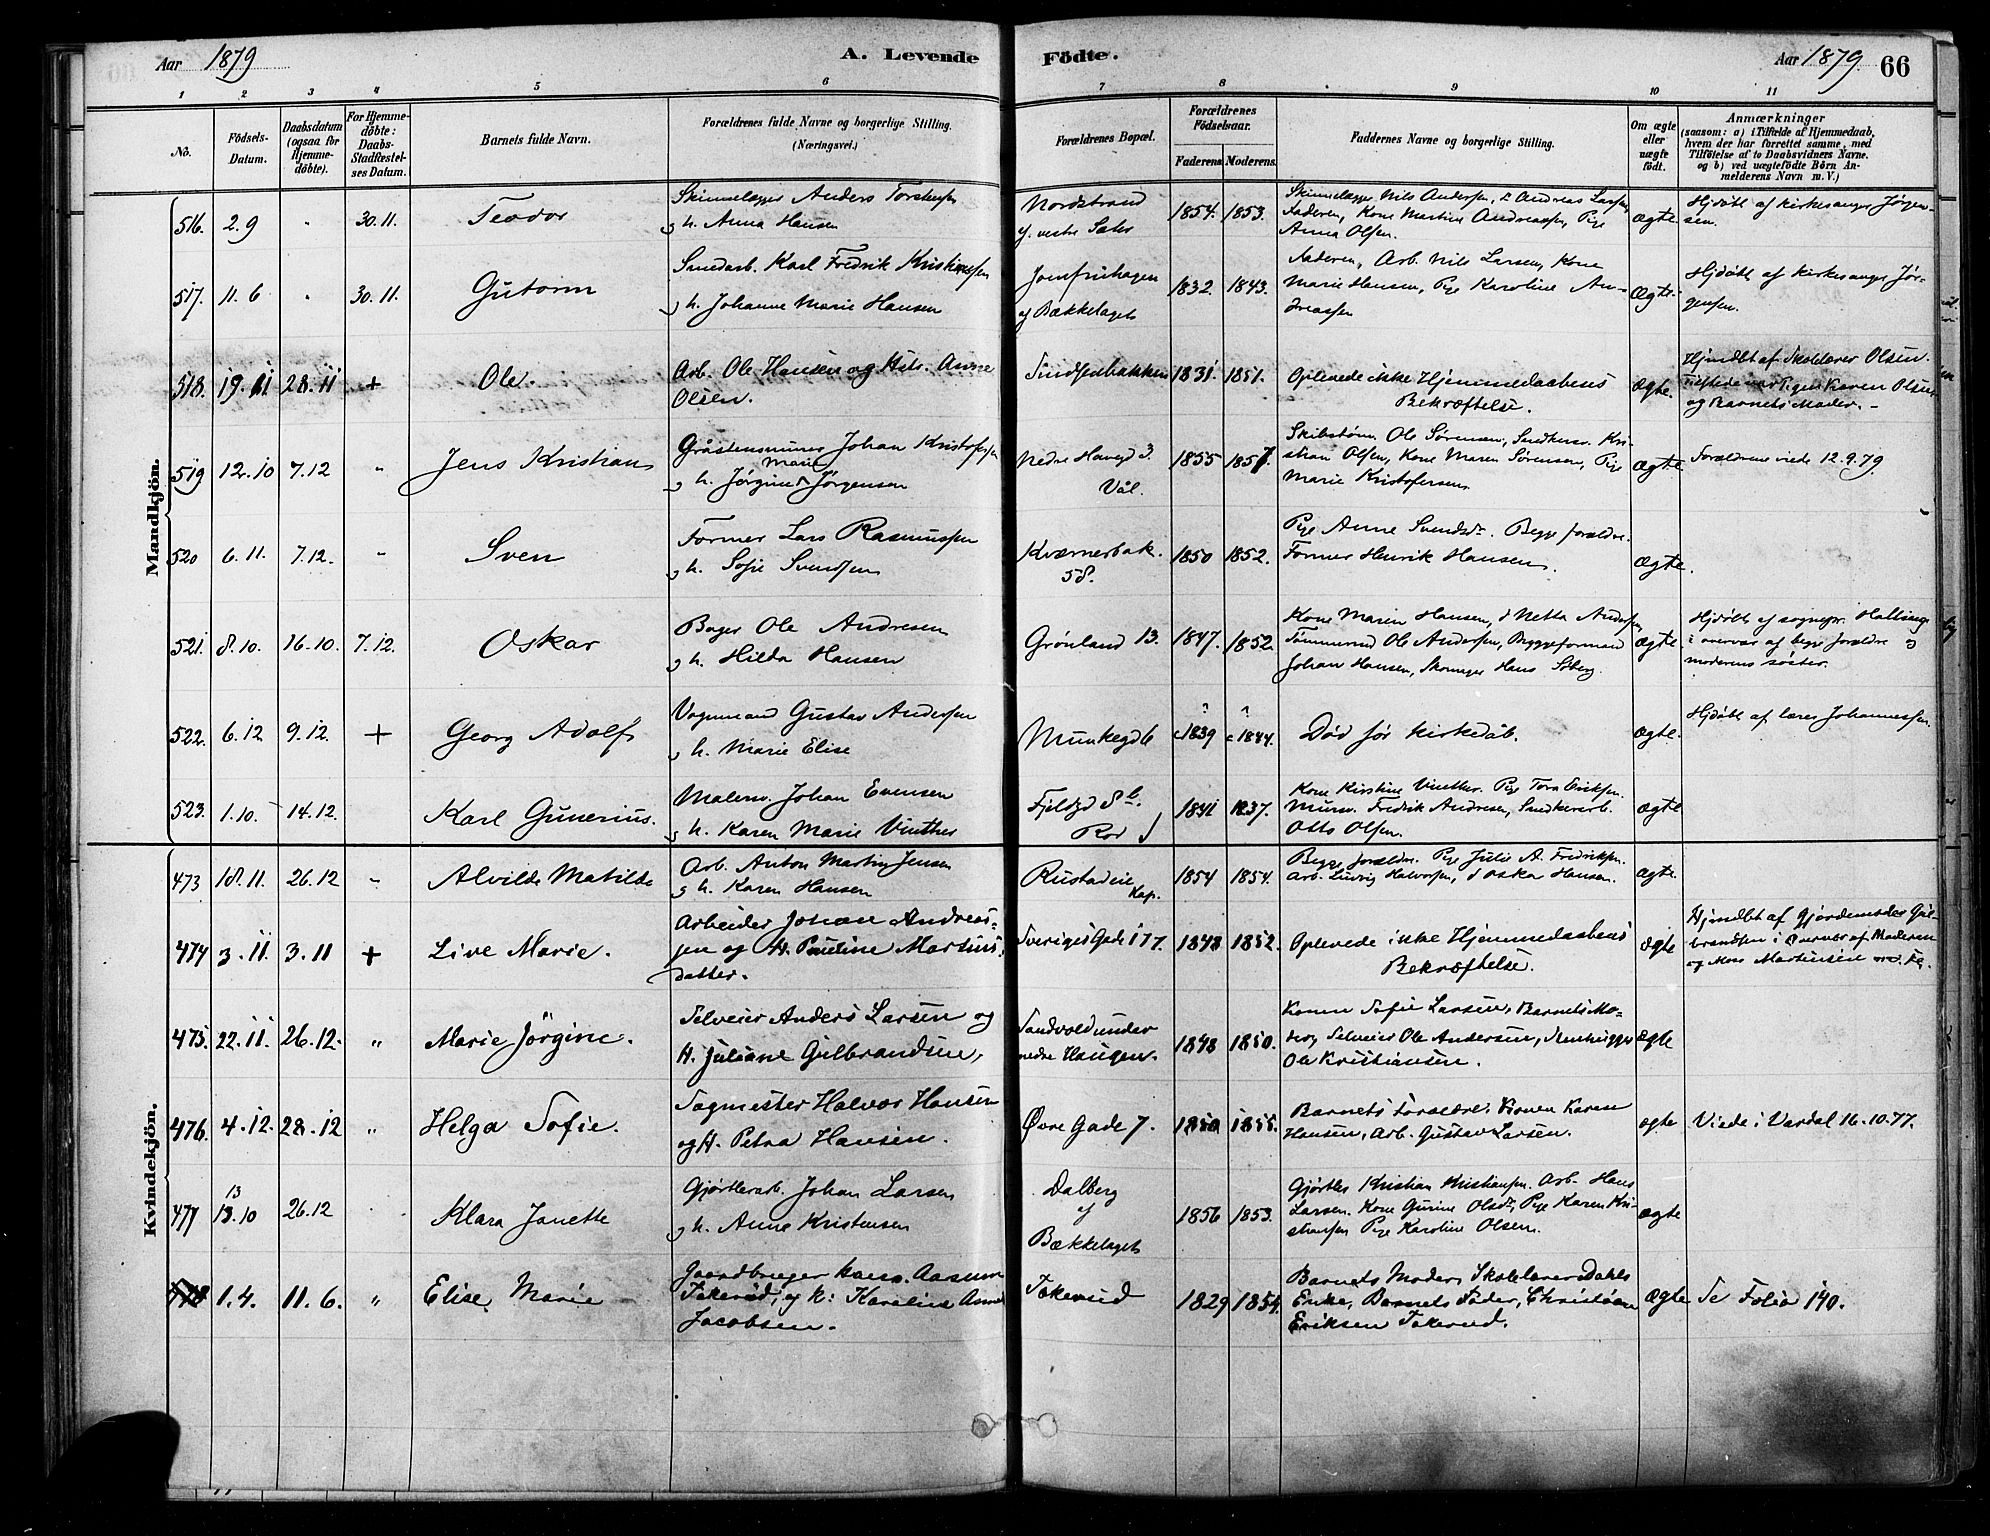 Aar 1879
A. Levende
Födte.
Aar 1879.
66
1 2 3 4 5 6 7 8 9 10 11
No.
Födsels-
Datum.
Daabsdatum
(ogsaa for
Hjemme-
döbte).
For Hjemme-
döbte:
Daabs-
Stadfæstel-
ses Datum.
Barnets fulde Navn.
Forældrenes fulde Navne og borgerlige Stilling.
(Næringsvei.)
Forældrenes Bopæl.
Forældrenes
Födselsaar.
Faderens. Moderens.
Faddernes Navne og borgerlige Stilling.
Om ægte
eller
uægte
födt.
Anmærkninger
(saasom: a) i Tilfælde af Hjemmedaab,
hvem der har forrettet samme, med
Tilföielse af to Daabsvidners Navne.
og b) ved uægtefödte Börn An-
melderens Navn m. V.)
Mandkjön.
516. 2.9 " 30.11. Teodor
Anders Torstensen
og h. Anna Hansen
Nordstrand
1854. 1853.
Nils Andersen, Andreas Larsen,
Faderen, Kone Martine Andreassen, Pige
Anna Olsen.
ægte.
Hjdöbt af kirkesanger Jörgen-
sen.
517. 11.6 " 30.11. Gutorm
Smedarb. Karl Fredrik Kristiansen
og h. Johanne Marie Hansen
Jomfruhagen
af Bækkelaget
1832. 1843.
Faderen, Arb. Nils Larsen, Kone
Marie Hansen, Pige Karoline An-
dreassen
Ægte.
Hjdöbt af kirkesanger Jör-
gensen.
518. 19.11 28.11 + Ole.
Arb. Ole Hansen og Hstr. Anne
Olsen.
1831. 1851.
Oplevede ikke Hjemmedaabens
Bekræftelse.
ægte.
Hjmdbt af Skolelærer Olsen.
Pigen Karen Olsen
og Barnets Moder. -
519 12.10 7.12 " Jens Kristian
Gråstensmurer Johan Kristofersen
Marie
og h. Jörgine Jörgensen
Nedre
Vål.
1855 1857.
Ole Sörensen, Kri-
stian Olsen, Kone Maren Sörensen, Pige
Marie Kristofersen.
ægte
Forældrene viede 12.9.79
520 6.11. 7.12. " Sven
Former Lars Rasmussen
og h. Sofie Svendsen
Kværnerbak.
58.
1850 1852.
Pige Anne Svendsdr. Begge forældre.
Former Henrik Hansen.
ægte.
521. 8.10. 16.10. 7.12. Oskar
Bager Ole Andresen
og h. Hilda Hansen
Grönland 13.
1847. 1852.
Kone Maren Hansen, d Netta Andersen,
Tömmermd Ole Andersen, Byggeformand
Johan Hansen, Skomager Hans
ægte
Hjdöbt af sognepr. Halling
i overvær af begge forældre og
moderens söster.
522. 6.12 9.12. + Georg Adolf
Vognmand Gustav Andersen
og h. Marie Elise
Munkegd 6
? ?
c 1839 c 1844.
Död för kirkedåb.
ægte.
Hjdöbt af lærer Johannessen.
523. 1.10. 14.12. Karl Gunerius.
Malersv. Johan Evensen
og h. Karen Marie Vinther
Fjeldgd 8b.
1841 1837.
Kone Kirstine Vinther. Pige Tora Eriksen.
Mursv. Fredrik Andresen, Snedkerarb.
Otto Olsen.
ægte
Kvindekjön.
473 18.11. 26.12 - Alvilde Matilde
Arb. Anton Martin Jensen
og h. Karen Hansen
Rustadeie
1854 1854.
Begge forældre. Pige Julie A. Fredriksen.
Arb. Ludvig Halvorsen, d Oskar Hansen.
ægte.
474 3.11. 3.11 + Live Marie.
Arbeider Johan Andreas-
sen og H. Pauline Martins-
datter.
Sveriges Gade 17.
1848 1852.
Oplevede ikke Hjemmedaabens
Bekræftelse.
ægte
Hjmdbt af Gjordemoder Gul-
brandsen i Overvær af Moderen
475. 22.11. 26.12. " Marie Jörgine.
Selveier Anders Larsen og
H. Juliane Gulbrandsen,
Sandvold under
nedre Haugen.
1848 1850.
Konen Sofie Larsen, Barnets Mo-
der, Selveier Ole Andersen, Stenhugger
Ole Kristiansen.
ægte
476. 4.12. 28.12 " Helga Sofie.
Sagmester Halvor Hansen
og H. Petra Hansen.
Øvre Gade 7.
1850 1855.
Barnets Forældre, Konen Karen
Hansen, Arb. Gustav Larsen.
ægte
Viede i Vardal 16.10.77.
13
477 13.10 26.12 Klara Janette
Gjörtlerarb. Johan Larsen
og h. Anne Kristensen
Dalberg
af
Bækkelaget
1856 1853.
Gjörtler Kristian Kristiansen. Arb. Hans
Larsen. Kone Gurine Olsdr, Pige Karen Kri-
stiansen Pige Karoline Olsen.
ægte
478 1.4. 11.6. " Elise Marie
Gaardbruger Aasmun
Takerud, og K: Karoline
Jacobsen.
Takerud
1829 1854.
Barnets Moder, Skolelærer Dahls
Enke, Barnets Fader, Christian
Eriksen Takerud.
ægte
Se Folio 140.